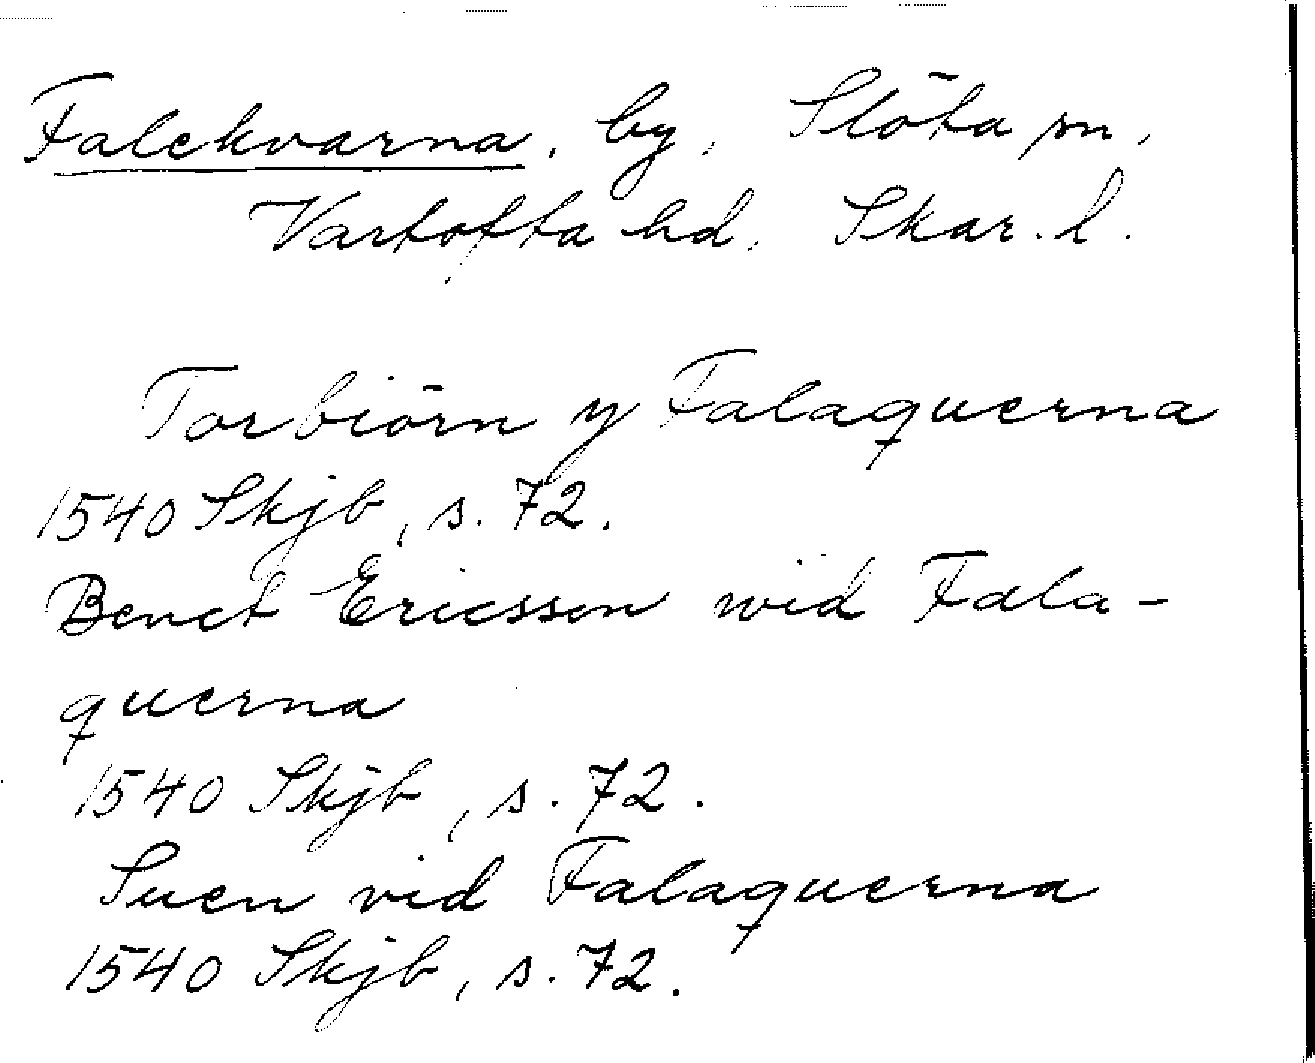 Falekvarna, by, Slöta sn,
Vartofta hd, Skar. l.
Torbiörn y Falaquerna
1540 Skjb, s. 72.
Benct Ericsson wid Fala-
querna
1540 Skjb, s. 72.
Suen vid Falaquerna
1540 Skjb, s. 72.